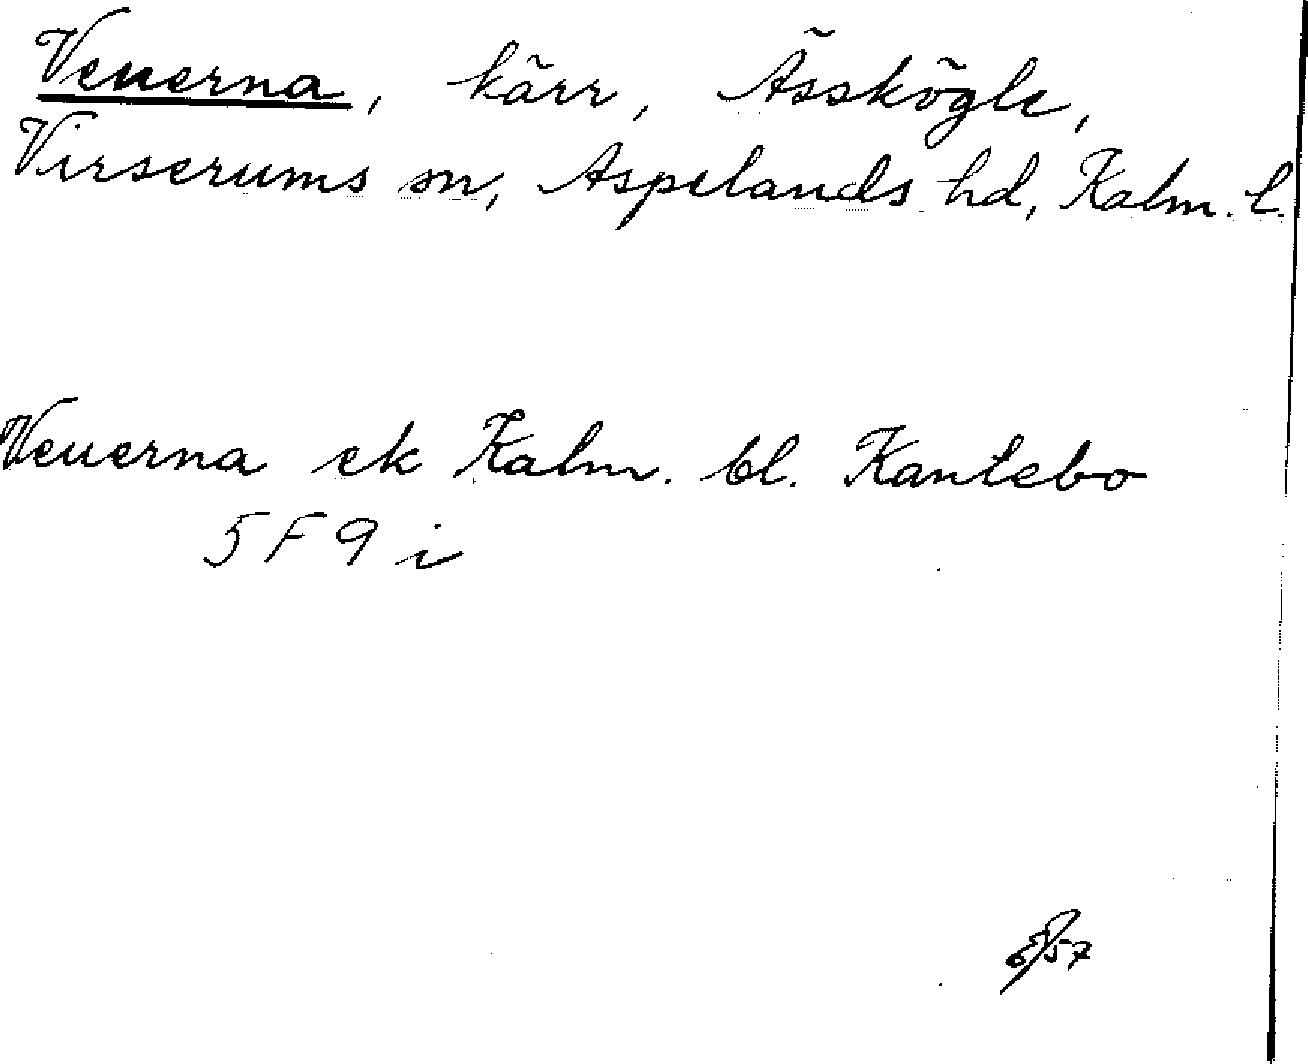 Veuerna, kärr, Åsskögle,
Virserums sn, Aspelands hd, Kalm. l.
Veuerna ek Kalm. bl. Kantebo
5 F 9 i
57